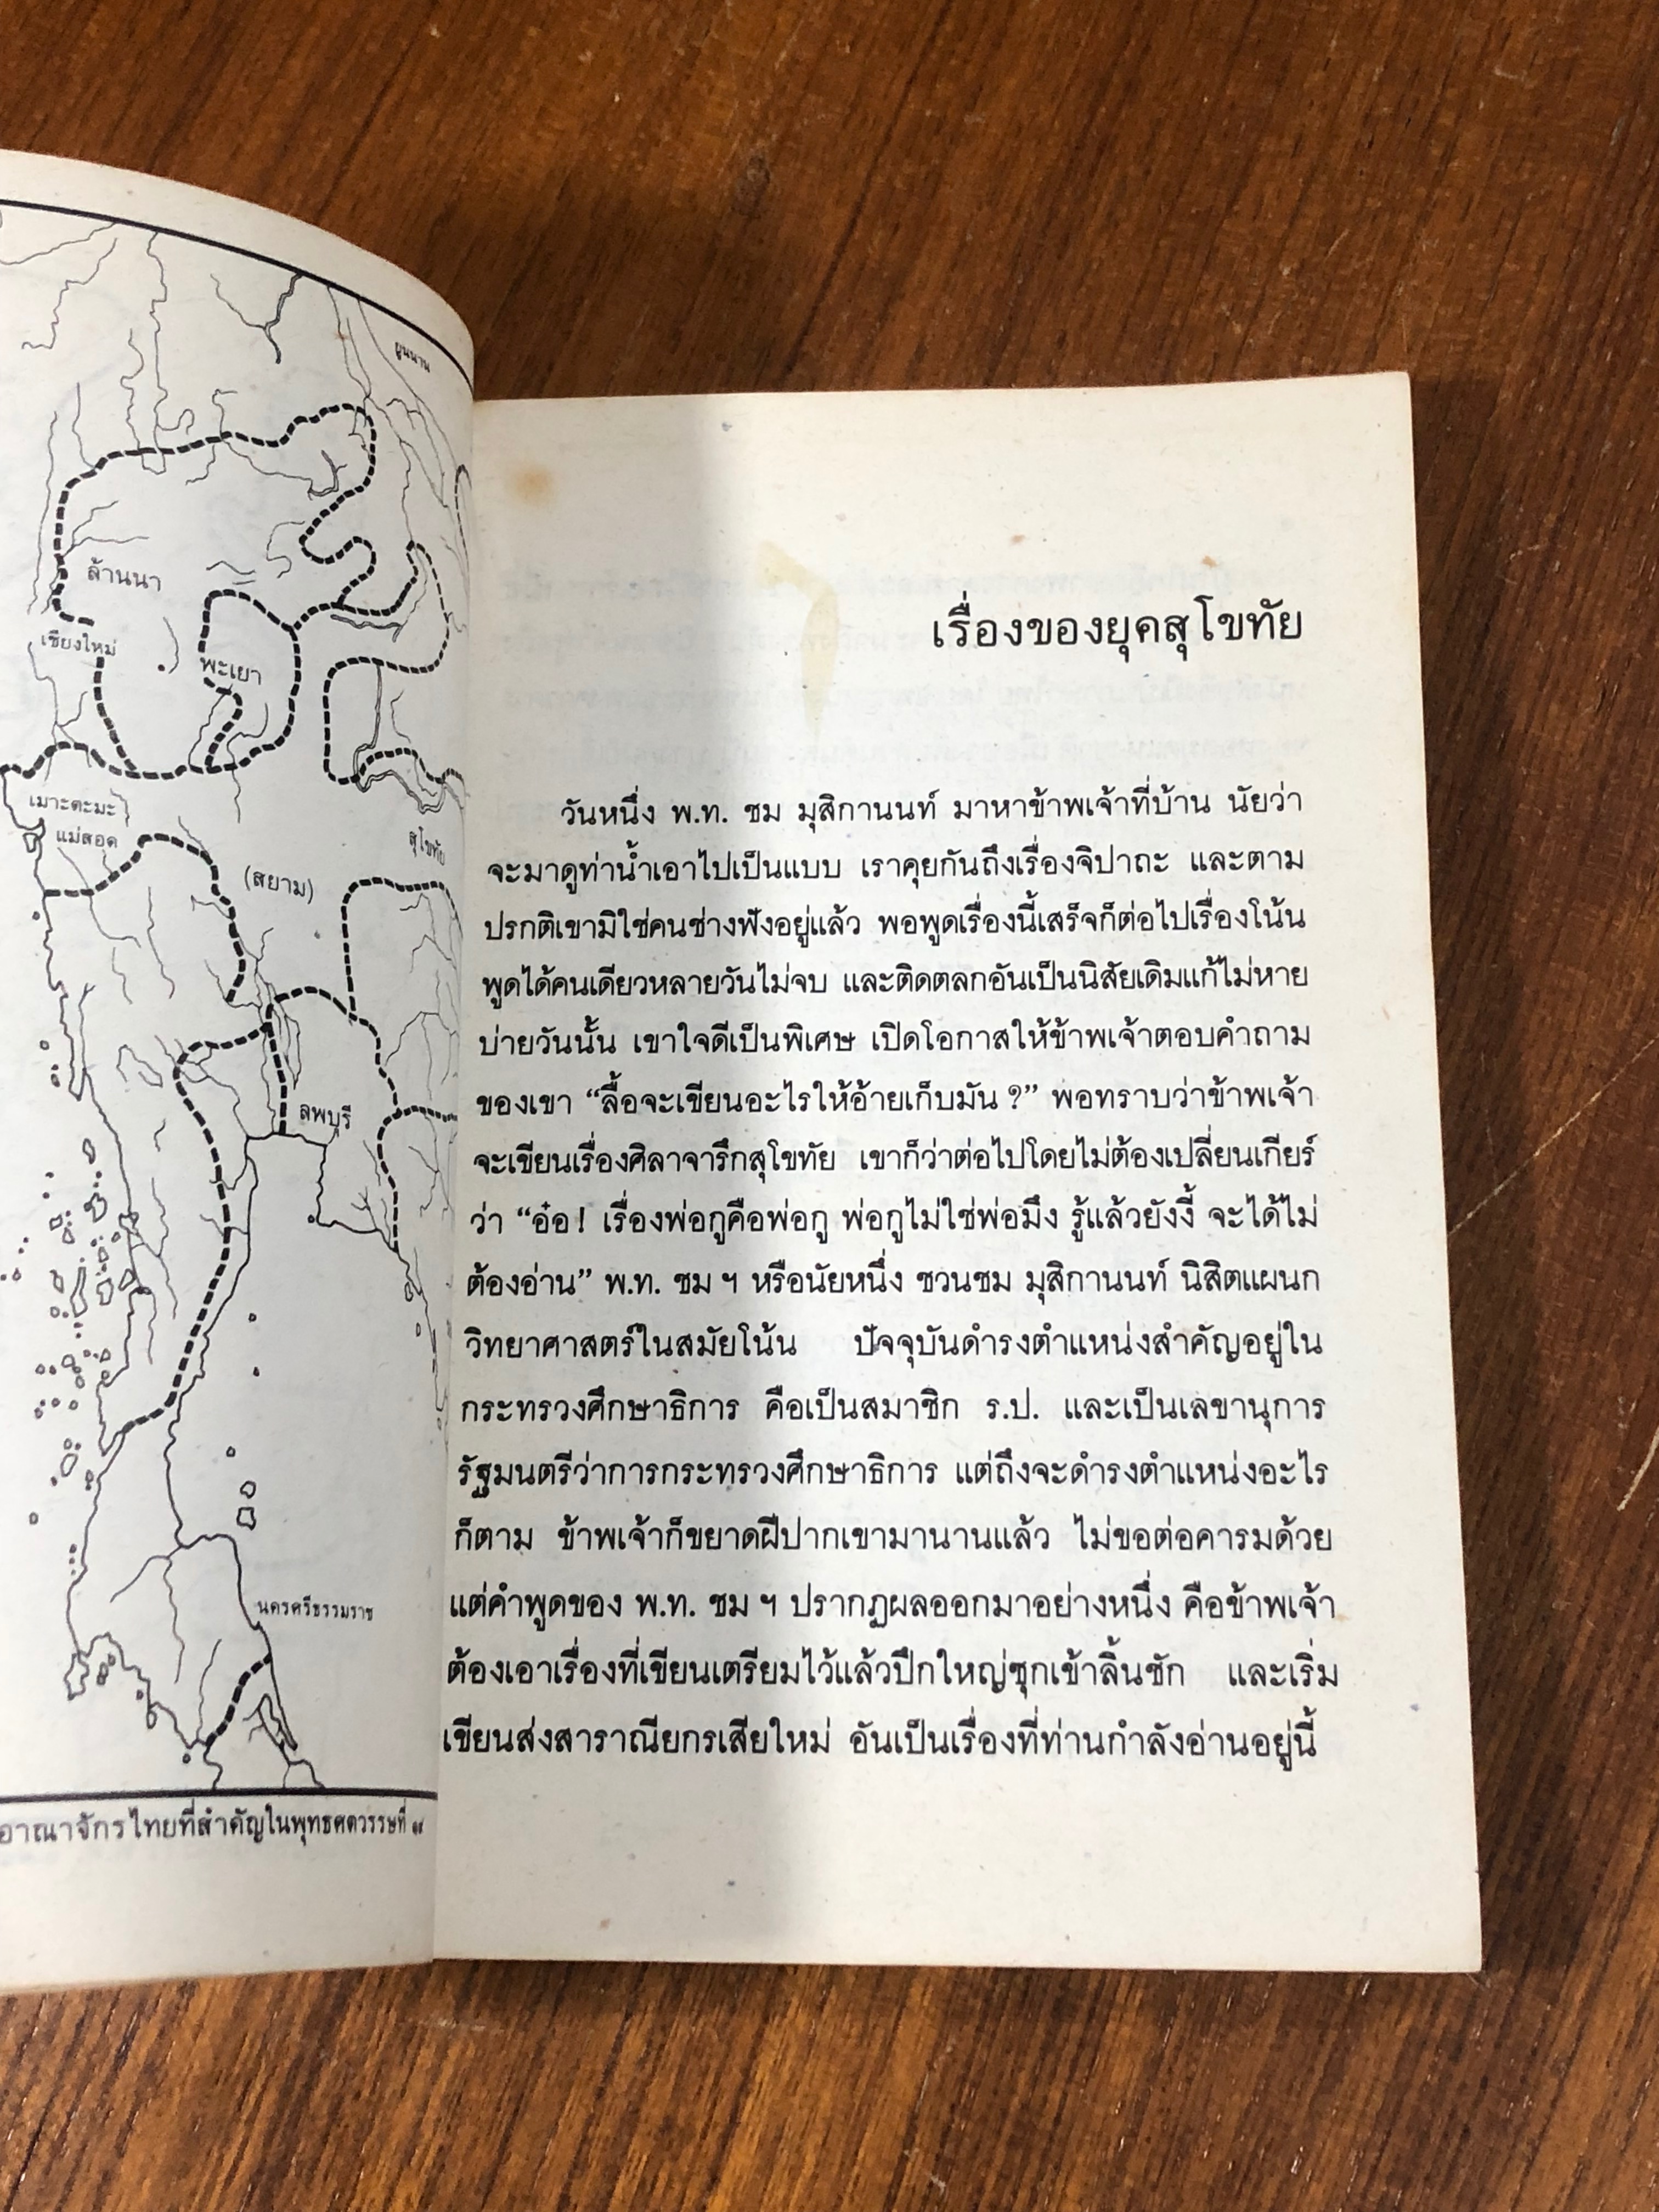 ยูนนาน
ล้านนา
เชียงใหม่
พะเยา
เมาะตะมะ
แม่สอด
สุโขทัย
(สยาม)
ลพบุรี
นครศรีธรรมราช
อาณาจักรไทยที่สำคัญในพุทธศตวรรษที่
เรื่องของยุคสุโขทัย
วันหนึ่ง พ.ท. ชม มุสิกานนท์ มาหาข้าพเจ้าที่บ้าน นัยว่า
จะมาดูท่าน้ำเอาไปเป็นแบบ เราคุยกันถึงเรื่องจิปาถะ และตาม
ปรกติเขามิใช่คนช่างฟังอยู่แล้ว พอพูดเรื่องนี้เสร็จก็ต่อไปเรื่องโน้น
พูดได้คนเดียวหลายวันไม่จบ และติดตลกอันเป็นนิสัยเดิมแก้ไม่หาย
บ่ายวันนั้น เขาใจดีเป็นพิเศษ เปิดโอกาสให้ข้าพเจ้าตอบคำถาม
ของเขา “ลื้อจะเขียนอะไรให้อ้ายเก็บมัน ?” พอทราบว่าข้าพเจ้า
จะเขียนเรื่องศิลาจารึกสุโขทัย เขาก็ว่าต่อไปโดยไม่ต้องเปลี่ยนเกียร์
ว่า “อ๋อ ! เรื่องพ่อกูคือพ่อกู พ่อกูไม่ใช่พ่อมึง รู้แล้วยังงี้ จะได้ไม่
ต้องอ่าน” พ.ท. ชม ฯ หรือนัยหนึ่ง ชวนชม มุสิกานนท์ นิสิตแผนก
วิทยาศาสตร์ในสมัยโน้น ปัจจุบันดำรงตำแหน่งสำคัญอยู่ใน
กระทรวงศึกษาธิการ คือเป็นสมาชิก ร.ป. และเป็นเลขานุการ
รัฐมนตรีว่าการกระทรวงศึกษาธิการ แต่ถึงจะดำรงตำแหน่งอะไร
ก็ตาม ข้าพเจ้าก็ขยาดฝีปากเขามานานแล้ว ไม่ขอต่อคารมด้วย
แต่คำพูดของ พ.ท. ชม ฯ ปรากฏผลออกมาอย่างหนึ่ง คือข้าพเจ้า
ต้องเอาเรื่องที่เขียนเตรียมไว้แล้วปึกใหญ่ซุกเข้าลิ้นชัก และเริ่ม
เขียนส่งสาราณียกรเสียใหม่ อันเป็นเรื่องที่ท่านกำลังอ่านอยู่นี้